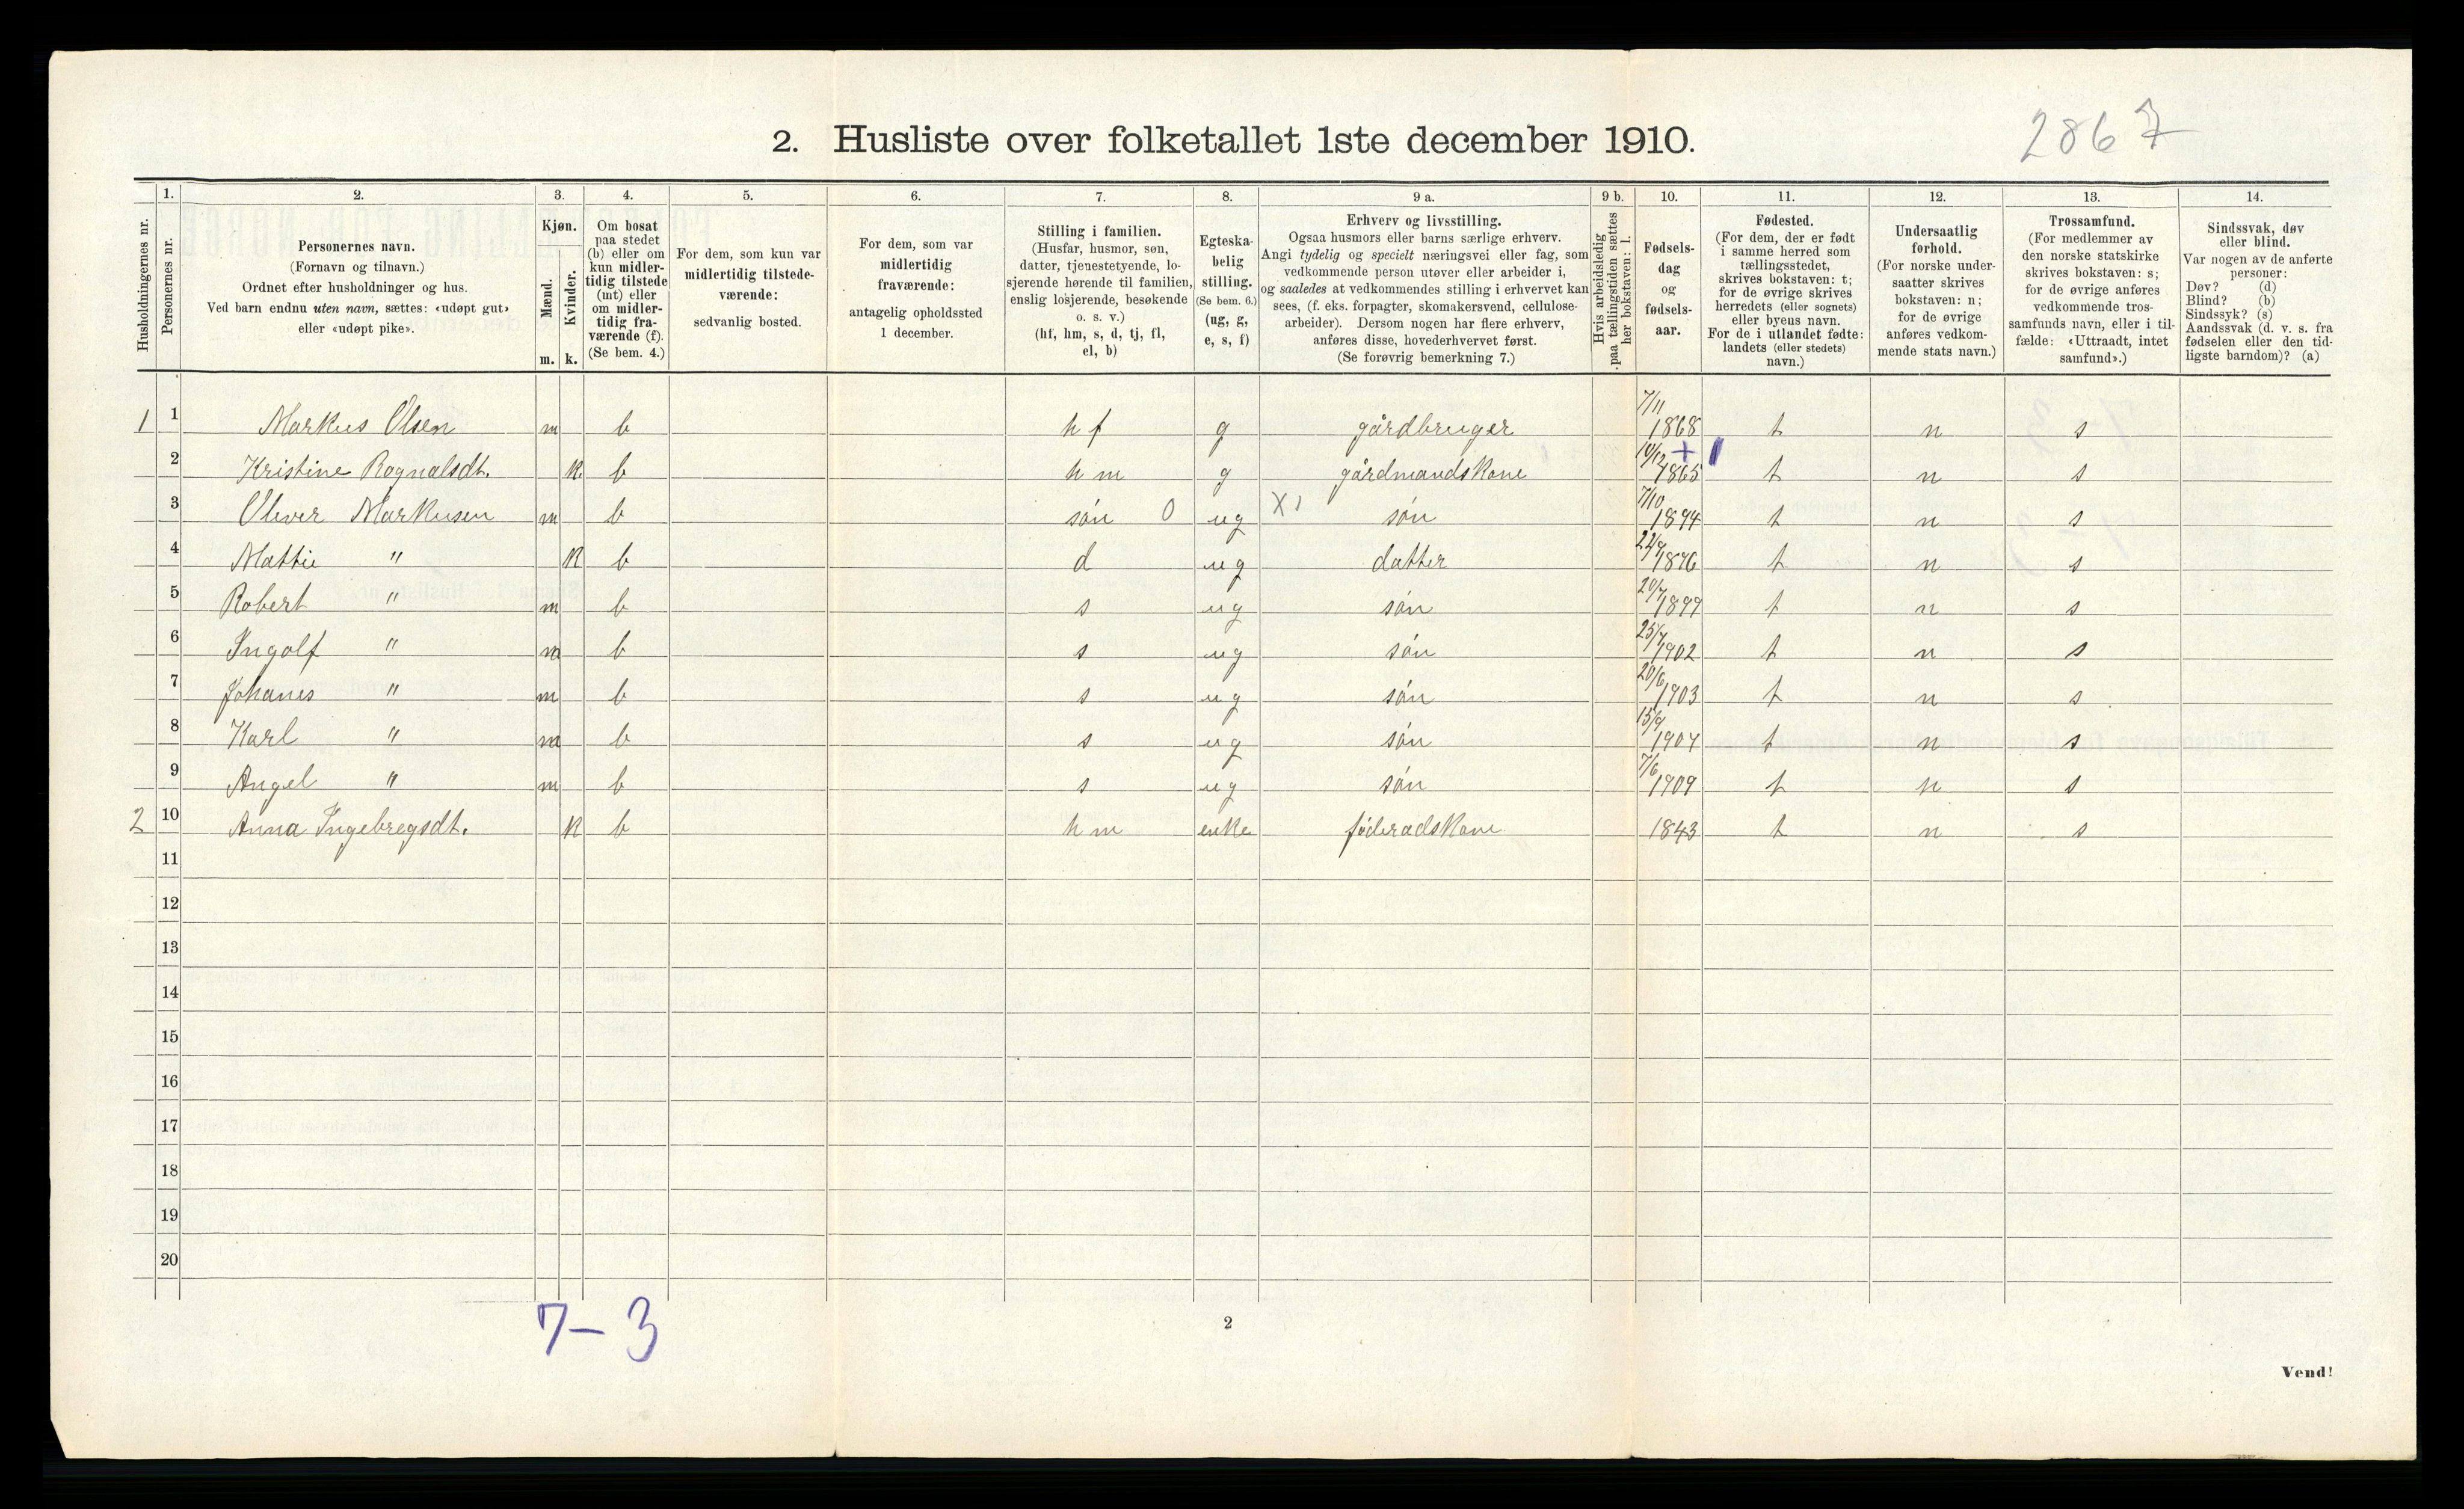 2. Husliste over folketallet 1ste december 1910.
2867
Husholdningernes nr.
1.
Personernes nr.
2.
Personernes navn.
(Fornavn og tilnavn.)
Ordnet efter husholdninger og hus.
Ved barn endnu uten navn, sættes: «udøpt gut»
eller «udøpt pike».
3.
Kjøn.
Mænd.
Kvinder.
m. k.
4.
Om bosat
paa stedet
(b) eller om
kun midler-
tidig tilstede
(mt) eller
om midler-
tidig fra-
værende (f).
(Se bem. 4.)
5.
For dem, som kun var
midlertidig tilstede-
værende:
sedvanlig bosted.
6.
For dem, som var
midlertidig
fraværende:
antagelig opholdssted
1 december.
7.
Stilling i familien.
(Husfar, husmor, søn,
datter, tjenestetyende, lo-
sjerende hørende til familien,
enslig losjerende, besøkende
o. s. v.)
(hf, hm, s, d, tj, fl,
el, b)
8.
Egteska-
belig
stilling.
(Se bem. 6.)
(ug, g,
e, s, f)
9 a.
Erhverv og livsstilling.
Ogsaa husmors eller barns særlige erhverv.
Angi tydelig og specielt næringsvei eller fag, som
vedkommende person utøver eller arbeider i,
og saaledes at vedkommendes stilling i erhvervet kan
sees, (f. eks. forpagter, skomakersvend, cellulose-
arbeider). Dersom nogen har flere erhverv,
anføres disse, hovederhvervet først.
(Se forøvrig bemerkning 7.)
9 b.
Hvis arbeidsledig
paa tællingstiden sættes
her bokstaven: l.
10.
Fødsels-
dag
og
fødsels-
aar.
11.
Fødested.
(For dem, der er født
i samme herred som
tællingsstedet,
skrives bokstaven: t;
for de øvrige skrives
herredets (eller sognets)
eller byens navn.
For de i utlandet fødte:
landets (eller stedets)
navn.)
12.
Undersaatlig
forhold.
(For norske under-
saatter skrives
bokstaven: n;
for de øvrige
anføres vedkom-
mende stats navn.)
13.
Trossamfund.
(For medlemmer av
den norske statskirke
skrives bokstaven: s;
for de øvrige anføres
vedkommende tros-
samfunds navn, eller i til-
fælde: «Uttraadt, intet
samfund».)
14.
Sindssvak, døv
eller blind.
Var nogen av de anførte
personer:
Døv? (d)
Blind? (b)
Sindssyk? (s)
Aandssvak (d. v. s. fra
fødselen eller den tid-
ligste barndom)? (a)
1 1 Markus Olsen m b hf g gårdbruger 7/11 1868 t n s
2 Kristine Rognalsdt. k b hm g gårdmandskone 14/12 1865 + 1 t n s
3 Olever Markusen m b søn 0 ug X1 søn 7/10 1894 t n s
4 Mattie " k b d ug datter t n s
5 Robert " m b s ug søn t n s
6 Ingolf " m b s ug søn 25/7 1902 t n s
7 Johanes " m b s ug søn 20/6 1903 t n s
8 Karl " m b s ug søn 15/9 1907 t n s
9 Angel " m b s ug søn 7/6 1909 t n s
2 10 Anna Ingebregsdt. k b hm enke føderadskone 1843 t n s
11
12
13
14
15
16
17
18
19
20
7 – 3
2
Vend!